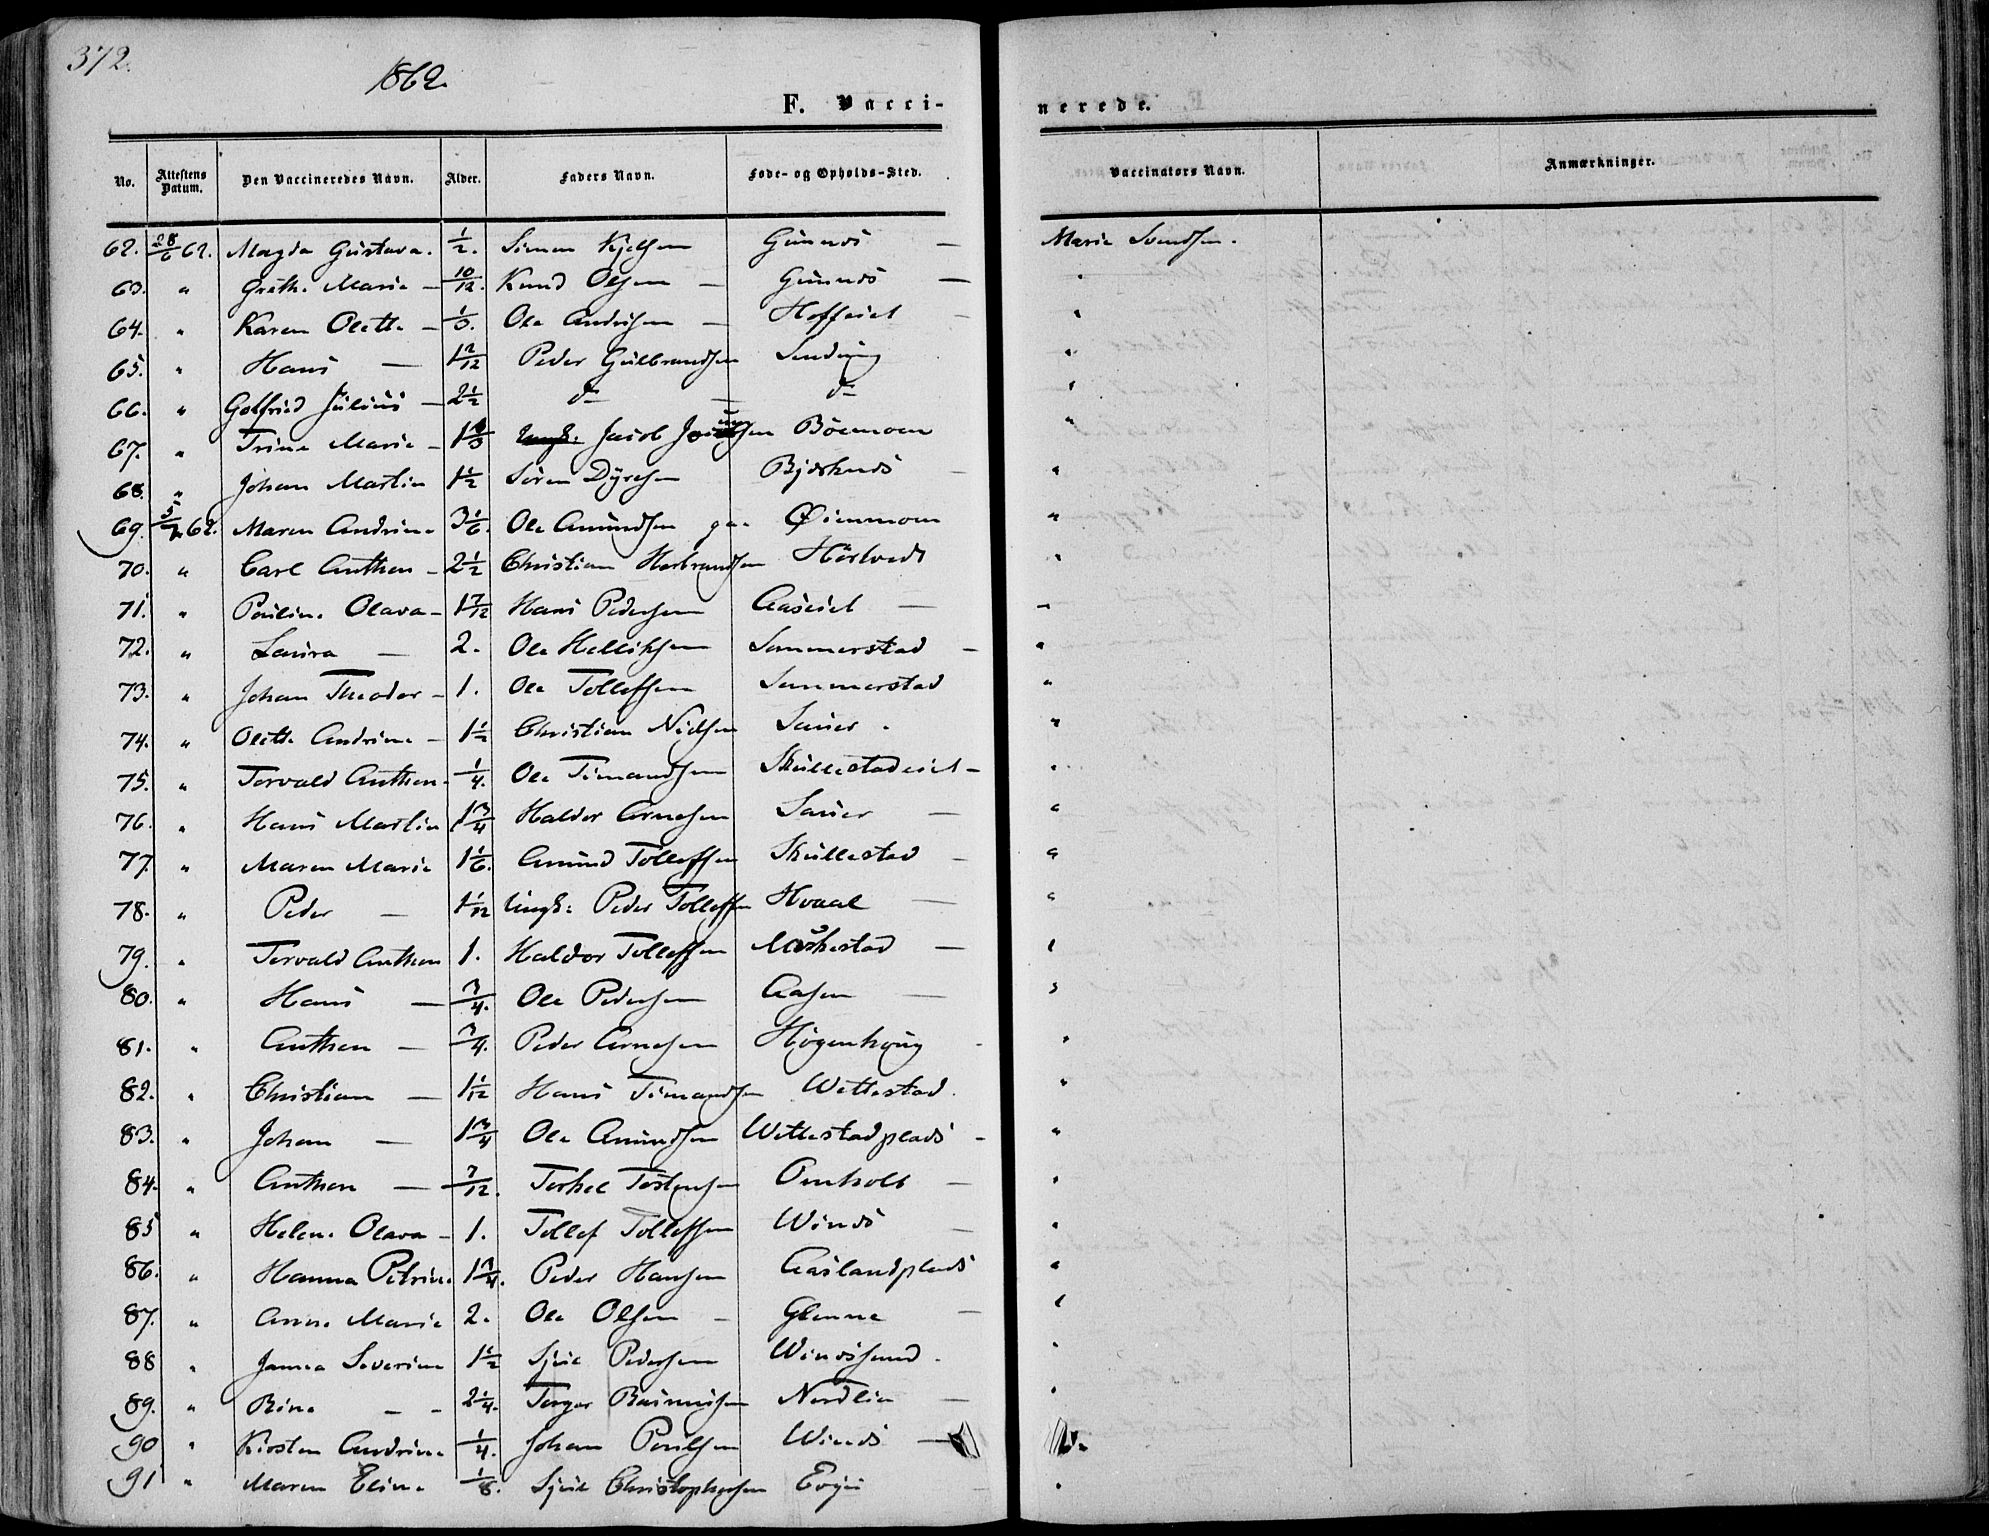 372.
1862.
F. Vacci-
nerede.
No. Attestens Datum. Den Vaccineredes Navn. Alder. Faders Navn. Føde- og Opholds-Sted. Vaccinators Navn. Anmærkninger.
62. 28/6 62. Magda Gustava. 1/2. Simen Kjelsen — Marie Svendsen.
63. " Grethe Marie — 10/12. Knud Olsen —
64. " Karen Olette — Ole Andersen — Hoffeiet
65. " Hans — 1 2/12 Peder Gulbrandsen
66. " Gotfried Julius — 2 1/2 do — do
67. " Trine Marie — Jacob Boemoen
68. " Johan Martin 1 1/2 Sören Dyresen Bjerknes —
69. 5/7 62. Maren Andrine 3 1/6. Ole Amundsen Øienmoen
70. " Carl Anthon — 2 1/2 Christian Herbrandsen Hörtvedt
71. " Pauline Olava — 1 7/12 Hans Pedersen Aaseiet —
72. " Laura — 2. Ole Helliksen Sommerstad —
73. " Johan Theodor — 1. Ole Tollefsen Sommerstad
74. " Olette Andrine — 1 1/2 Christian Nielsen Sauer.
75. " Torvald Anthon — 1/4. Ole Simundsen Skullestadeiet —
76. " Hans Martin 1 3/4 Haldor Arnesen Sauer —
77. " Maren Marie 1 1/6. Amund Tollefsen Skullestad —
78. " Peder — 1 1/12 Ungk: Peder Tollefsen Hvaal —
79. " Torvald Anthon 1. Haldor Tollefsen —
80. " Hans — 3/4. Ole Pedersen Aasen —
81. " Anthon — 3/4. Peder Arnesen Høgenhoug
82. " Christian — 1 1/12 Hans Simundsen Wettestad.
83. " Johan — 1 3/4 Ole Amundsen Wettestadplads —
84. " Anthon — 7/12. Torkel Tostensen Omholt —
85 " Helene Olava — 1. Tollef Tollefsen Winds —
86. " Hanna Petrine 1 3/4. Peder Hansen Aaslandplads
87. " Anne Marie 2. Ole Olsen — Glenne —
88 " Janna Severine 1 1/2 Sjul Pedersen Windssund.
89. " Rine — — 2 1/4. Torger Rasmussen Nordlia —
90 " Kirsten Andrine 1/4. Johan Poulsen Winds —
91 " Maren Eline 1/8. Sjul Christophersen Evju